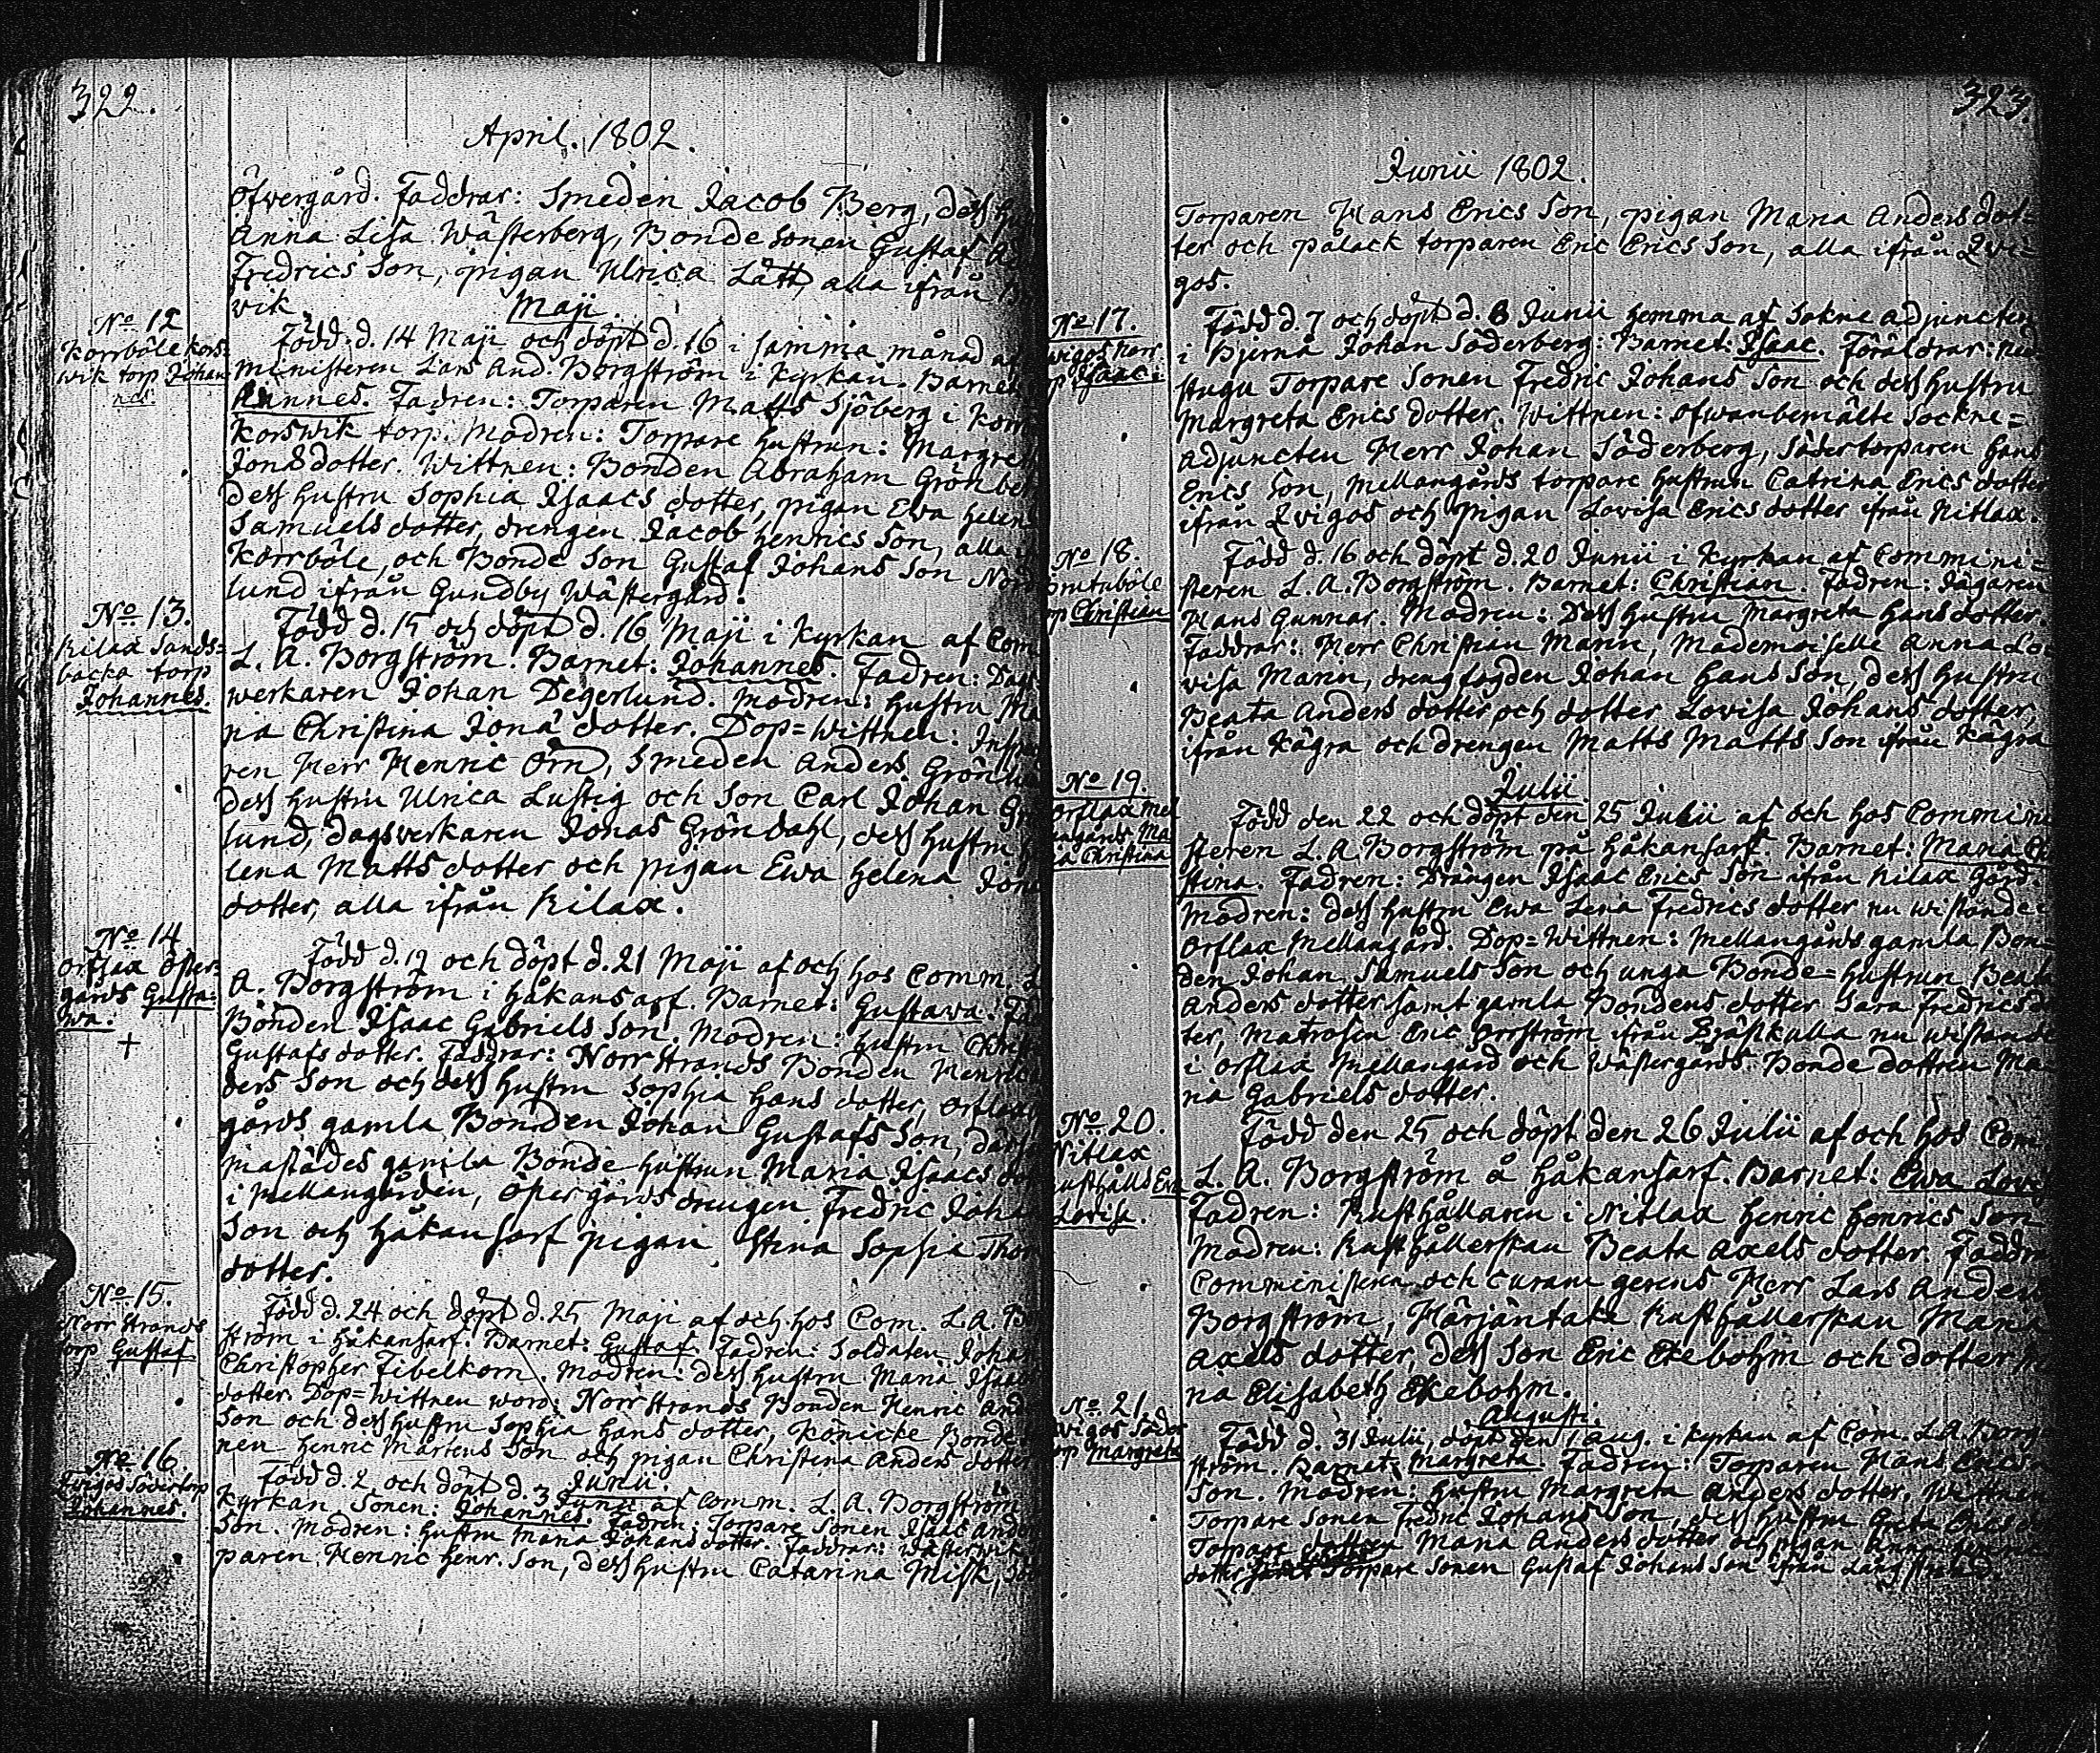 322.
April. 1802.
öfvergård. Faddrar: Smeden Jacob Berg, dess
Anna Lisa Wästerberg, Bonde sonen Gustaf
Fredrics Son, pigan Ulrica Lätt, alla ifrån
wik.
Maji.
No. 12
Korrböle kors=
wik torp Johan
nes.
Född d. 14 Maji och döpt d. 16 i samma månad af
ministeren Lars And. Borgström i Kyrkan. Barnet
hannes. Fadren: Torparen Matts Sjöberg i Korr
Korswik torp. Modren: Torpare hustrun: Margret
Jonæ dotter. Wittnen: Bonden Abraham Grönbe
dess hustru Sophia Isaacs dotter, pigan Ewa Helen
Samuels dotter, drengen Jacob Henrics Son, alla
Korrböle, och Bonde Son Gustaf Johans Son Nord
lund ifrån Gundby Wästergård.
No. 13.
Kilax Sands=
backa torp
Johannes.
Född d. 15 och döpt d. 16 Maji i Kyrkan af Com
L. A. Borgström. Barnet: Johannes. Fadren: Dags
werkaren Johan Degerlund. Modren: hustru Ma
ria Christina Jonæ dotter. Dop=Wittnen: Insp
ren Herr Henric Örn, Smeden Anders Grön
dess hustru Ulrica Lustig och Son Carl Johan Gr
lund, dagsverkaren Jonas Gröndahl, dess hustru
lena Matts dotter och pigan Ewa Helena Jonæ
dotter, alla ifrån Kilax.
No. 14
Orslax Öster=
gårds Gusta=
wa.
+
Född d. 19 och döpt d. 21 Maji af och hos Comm. L
A. Borgström i Håkansarf. Barnet: Gustawa. Fa
Bonden Isaac Gabriels Son. Modren: hustru Christ
Gustafs dotter. Faddrar: Norrstrands Bonden Henric
ders Son och dess hustru Sophia Hans dotter, Orslax
gårds gamla Bonden Johan Gustafs Son, därs
mastädes gamla Bonde hustrun Maria Isaacs do
i Mellangården, Östergårds drengen Fredric Joha
Son och Håkansarf pigan Stina Sophia Tho
dotter.
No. 15.
Norrstrands
torp Gustaf
Född d. 24 och döpt d. 25 Maji af och hos Com. L. A. B
ström i Håkansarf. Barnet: Gustaf. Fadren: Soldaten Johan
Christopher Fibelkorn. Modren: dess hustru Maria Isaac
dotter. Dop=Wittnen woro: Norrstrands Bonden Henric And
Son och dess hustru Sophia Hans dotter, Könicke Bonde
nen Henric Mårtens Son och pigan Christina Anders dotter
Junii.
No. 16.
Södertorp
Johannes.
Född d. 2 och döpt d. 3 Junii af Comm. L. A. Borgström
Kyrkan. Sonen: Johannes. Fadren: Torpare Sonen Isaac Anders
Son. Modren: hustru Maria Johans dotter. Faddrar: Wästerwik
paren Henric Henr. Son, dess hustru Catarina Misk,
323.
Junii 1802.
Torparen Hans Erics Son, pigan Maria Anders dot=
ter och pålack torparen Eric Erics Son, alla ifrån Qvi=
gos.
No. 17.
wigos Norr
p Isaac.
Född d. 7 och döpt d. 8 Junii hemma af Sokne adjuncten
i Bjernå Johan Söderberg: Barnet: Isaac. Föräldrar: Ned
stugu Torpare Sonen Fredric Johans Son och dess hustru
Margreta Erics dotter. Wittnen: ofwanbemälte Sockne=
adjuncten Herr Johan Söderberg, Södertorparen Hans
Erics Son, Mellangårds torpare hustrun Catrina Erics dotter
ifrån Qvigos och pigan Lovisa Erics dotter ifrån Nitlax.
No. 18.
böle
p Christian
Född d. 16 och döpt d. 20 Junii i Kyrkan af Commini=
steren L. A. Borgström. Barnet: Christian. Fadren: Jägaren
Hans Gunnar. Modren: Dess hustru Margreta Hans dotter.
Faddrar: Herr Christian Marin, Mademoiselle Anna Lo=
visa Marin, drengfogden Johan Hans Son, dess hustru
Beata Anders dotter och dotter Lovisa Johans dotter,
ifrån Kågra och drengen Matts Matts Son ifrån Kågra
Julii.
No. 19.
orslax Mel
langårds Ma
ria Christina
Född den 22 och döpt den 25 Julii af och hos Commini
steren L. A. Borgström på Håkansarf. Barnet: Maria Ch
stina. Fadren: Drängen Isaac Erics Son ifrån Kilax Gård.
Modren: dess hustru Ewa Lena Fredrics dotter nu wistande
Orslax Mellangård. Dop=Wittnen: Mellangårds gamla Bon=
den Johan Samuels Son och unga Bonde=hustrun Beata
Anders dotter samt gamla Bondens dotter Sara Fredrics do
ter, Matrosen Eric Norrström ifrån nu wistande
i Orslax Mellangård och Wästergårds Bonde dottren Ma=
ria Gabriels dotter.
No. 20.
Nitlax
usthålls Ewa
Lovisa.
Född den 25 och döpt den 26 Julii af och hos Com
L. A. Borgström å Håkansarf. Barnet: Ewa Lovi
Fadren: Rusthållaren i Nitlax Henric Henrics Son
Modren: Rusthållerskan Beata Axels dotter. Faddra
Comministern och Curam gerens Herr Lars Anders
Borgström, Härjäntaka Rusthållerskan Maria
Axels dotter, dess Son Eric Ekebohm och dotter
ria Elisabeth Ekebohm.
Augusti.
No. 21.
wigos Söder
orp Margreta
Född d. 31 Julii, döpt den 1 Aug. i Kyrkan af Com. L. A. Borg
ström. Barnet: Margreta. Fadren: Torparen Hans Erics
Son. Modren: hustru Margreta Anders dotter. Wittnen
Torpare Sonen Fredric Johans Son, dess hustru Greta Erics d
Torpare dottren Maria Anders dotter och pigan Anna
dotter samt Torpare Sonen Gustaf Johans Son ifrån Långstrand.